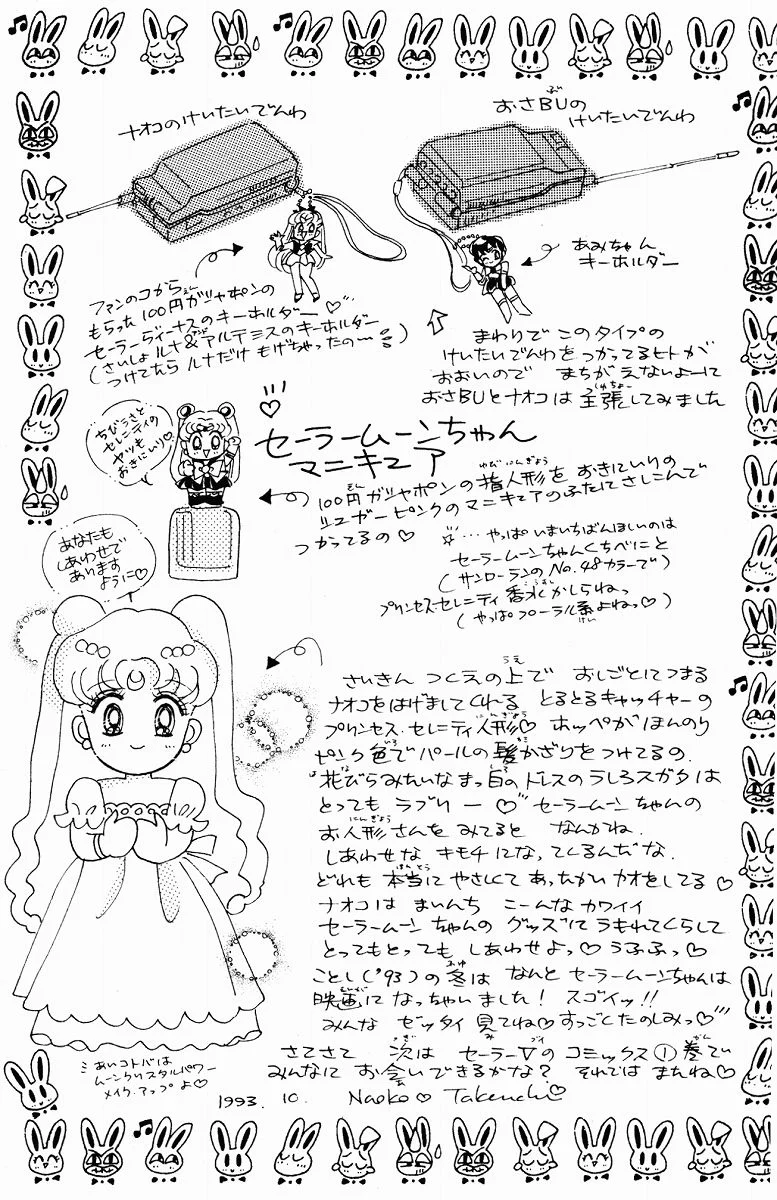 ナオコのけいたいでんわ
おさBUの
けいたいでんわ
あみちゃん
キーホルダー
ファンのコから
もらった100円ガシャポンの
セーラーヴィーナスのキーホルダー♡
(さいしょ ルナ&アルテミスのキーホルダー
つけてたら ルナだけ もげちゃったの〜)
まわりで このタイプの
けいたいでんわを つかってるヒトが
おおいので まちがえないよーに
おさBUとナオコは 主張してみました
ちびうさと
セレニティの
ヤツも
おきにいり♡
セーラームーンちゃん
マニキュア
100円ガシャポンの指人形を おきにいりの
シュガーピンクのマニキュアのふたにさしこんで
つかってるの♡
☆…やっぱ いまいちばんほしいのは
セーラームーンちゃんくちべにと
(サンローランのNo.48カラーで)
プリンセス・セレニティ 香水かしらねっ
(やっぱフローラル系よねっ♡)
あなたも
しあわせで
あります
ように♡
さいきん つくえの上で おしごとにつまる
ナオコをはげましてくれる とるとるキャッチャーの
プリンセス・セレニティ人形♡ ホッペがほんのり
ピンク色でパールの髪かざりをつけてるの.
花びらみたいなまっ白のドレスのうしろスガタは
とっても ラブリー♡ セーラームーンちゃんの
お人形さんを みてると なんかね.
しあわせな キモチになってくるんだな.
どれも 本当に やさしくて あったかい カオをしてる♡
ナオコは まいんち こーんな カワイイ
セーラームーンちゃんの グッズに うもれてくらして
とってもとっても しあわせよっ♡ うふふっ♡
ことし('93)の冬は なんと セーラームーンちゃんは
映画に なっちゃいました! スゴイッ!!
みんな ゼッタイ 見てね♡ すっごくたのしみっ♡
さてさて 次は セーラーVの コミックス①巻で
みんなに お会いできるかな? それでは またね♡
あいコトバは
ムーンクリスタルパワー
メイク・アップよ♡
1993. 10. Naoko♡Takeuchi♡